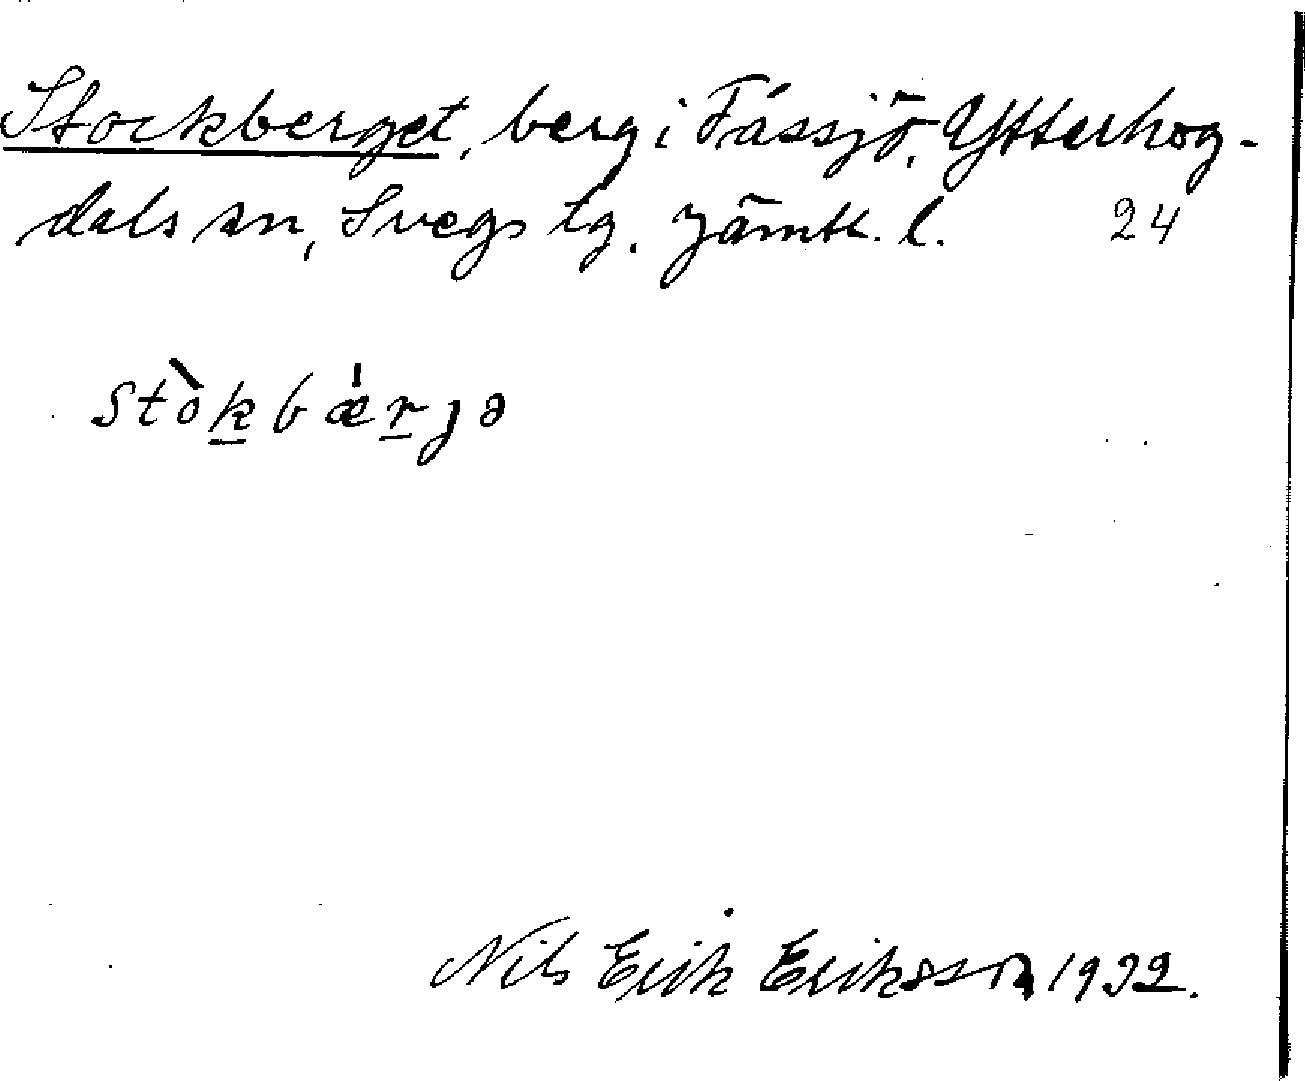 Stockberget, berg i Fåssjö, Ytterhog-
dals sn, Svegs tg. Jämtl. l. 24
stòk̲bær̲ȷə
Nils Erik Eriksson 1932.